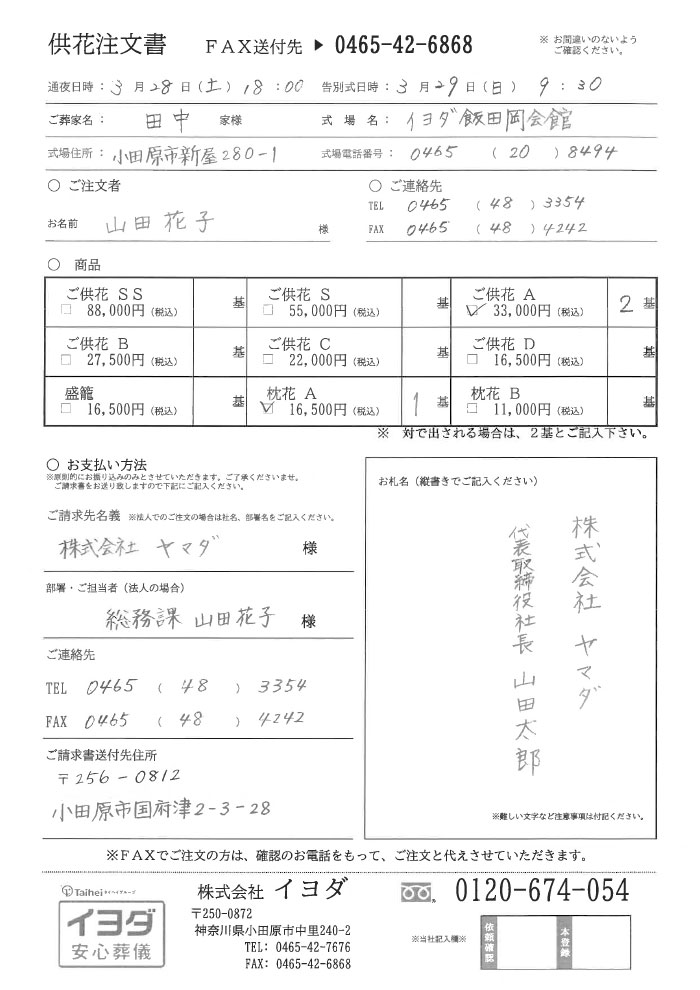 供花注文書 FAX送付先 ▶ 0465-42-6868 ※ お間違いのないよう
ご確認ください。
通夜日時：3 月 28 日（土）18：00 告別式日時：3 月 29 日（日） 9：30
ご葬家名： 田中 家様 式 場 名： イヨダ飯田岡会館
式場住所： 小田原市新屋280-1 式場電話番号： 0465 （ 20 ）8494
○ ご注文者 ○ ご連絡先
TEL 0465 （ 48 ）3354
お名前 山田花子 様 FAX 0465 （ 48 ）4242
○ 商品
ご供花 SS 基 ご供花 S 基 ご供花 A 2 基
□ 88,000円（税込） □ 55,000円（税込） ☑ 33,000円（税込）
ご供花 B 基 ご供花 C 基 ご供花 D 基
□ 27,500円（税込） □ 22,000円（税込） □ 16,500円（税込）
盛籠 基 枕花 A 1 基 枕花 B 基
□ 16,500円（税込） ☑ 16,500円（税込） □ 11,000円（税込）
※ 対で出される場合は、２基とご記入下さい。
○ お支払い方法
※原則的にお振り込みのみとさせていただきます。ご了承くださいませ。
ご請求書をお送り致しますので下記にご記入ください。
ご請求先名義 ※法人でのご注文の場合は社名、部署名をご記入ください。
株式会社 ヤマダ 様
部署・ご担当者（法人の場合）
総務課 山田花子 様
ご連絡先
TEL 0465 （ 48 ） 3354
FAX 0465 （ 48 ） 4242
ご請求書送付先住所
〒256-0812
小田原市国府津2-3-28
お札名（縦書きでご記入ください）
株式会社 ヤマダ
代表取締役社長 山田太郎
※難しい文字など注意事項は付記ください。
※ＦＡＸでご注文の方は、確認のお電話をもって、ご注文と代えさせていただきます。
Taihei タイヘイグループ
イヨダ
安心葬儀
株式会社 イヨダ
〒250-0872
神奈川県小田原市中里240-2
TEL: 0465-42-7676
FAX: 0465-42-6868
0120-674-054
※当社記入欄※ 依頼確認 本登録